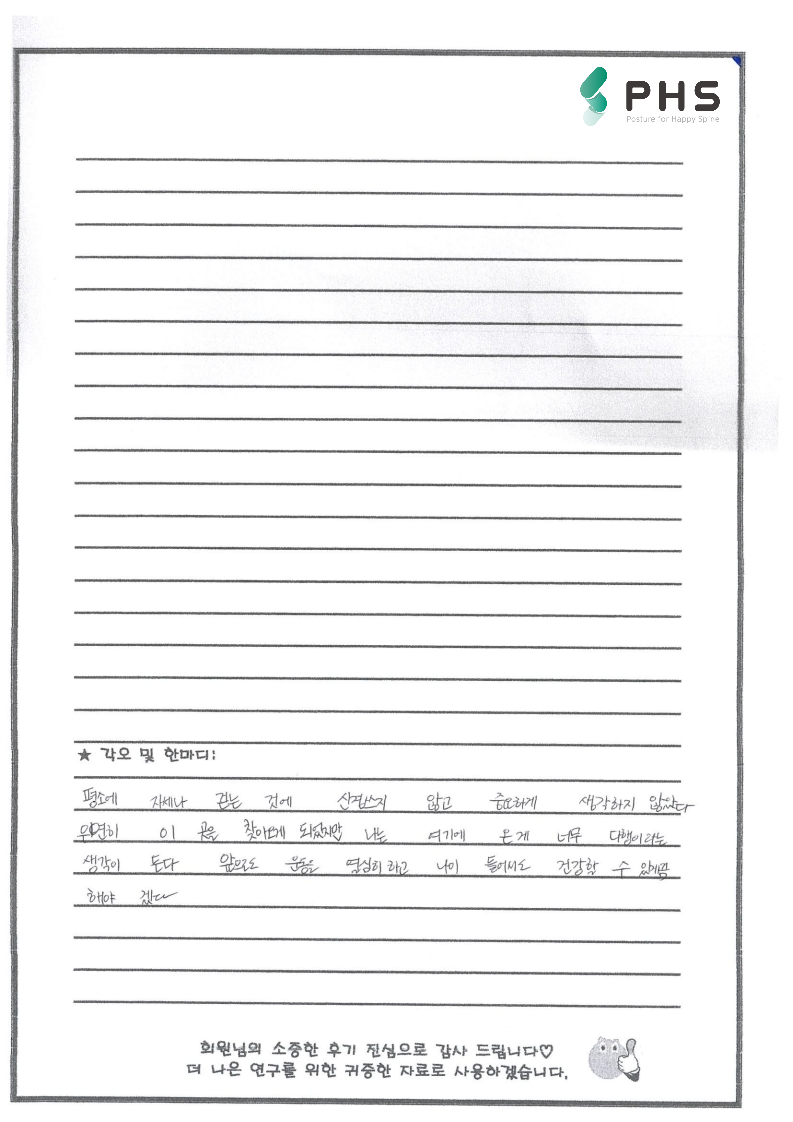 PHS
Posture for Happy Spine
★ 각오 및 한마디:
평소에 자세나 걷는 것에 신경쓰지 않고 중요하게 생각하지 않았다
우연히 이 곳을 찾아오게 되었지만 나는 여기에 온게 너무 다행이라는
생각이 든다 앞으로도 운동을 열심히 하고 나이 들어서도 건강할 수 있게끔
해야 겠다
회원님의 소중한 후기 진심으로 감사 드립니다♡
더 나은 연구를 위한 귀중한 자료로 사용하겠습니다.